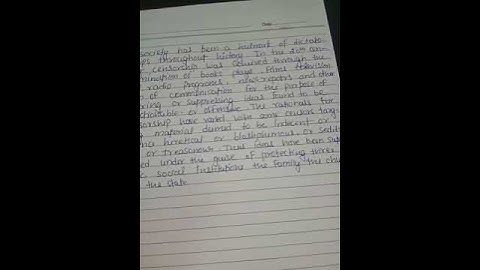 Date
society has been a hallmark of dictato
ps throughout history. In the 20th cen
censorship was achieved through the
mination of books plays films television
radio programs, news reports and other
of communication for the purpose of
ering or suppressing ideas found to be
or offensive. The rationals for
orship have varied some censors targ
material to be indecent or
heretical or blasphemous or sedit
or treasonous Thus ideas have been sup
ed under the guise of protecting three
social Institutions the family the chu
the state.